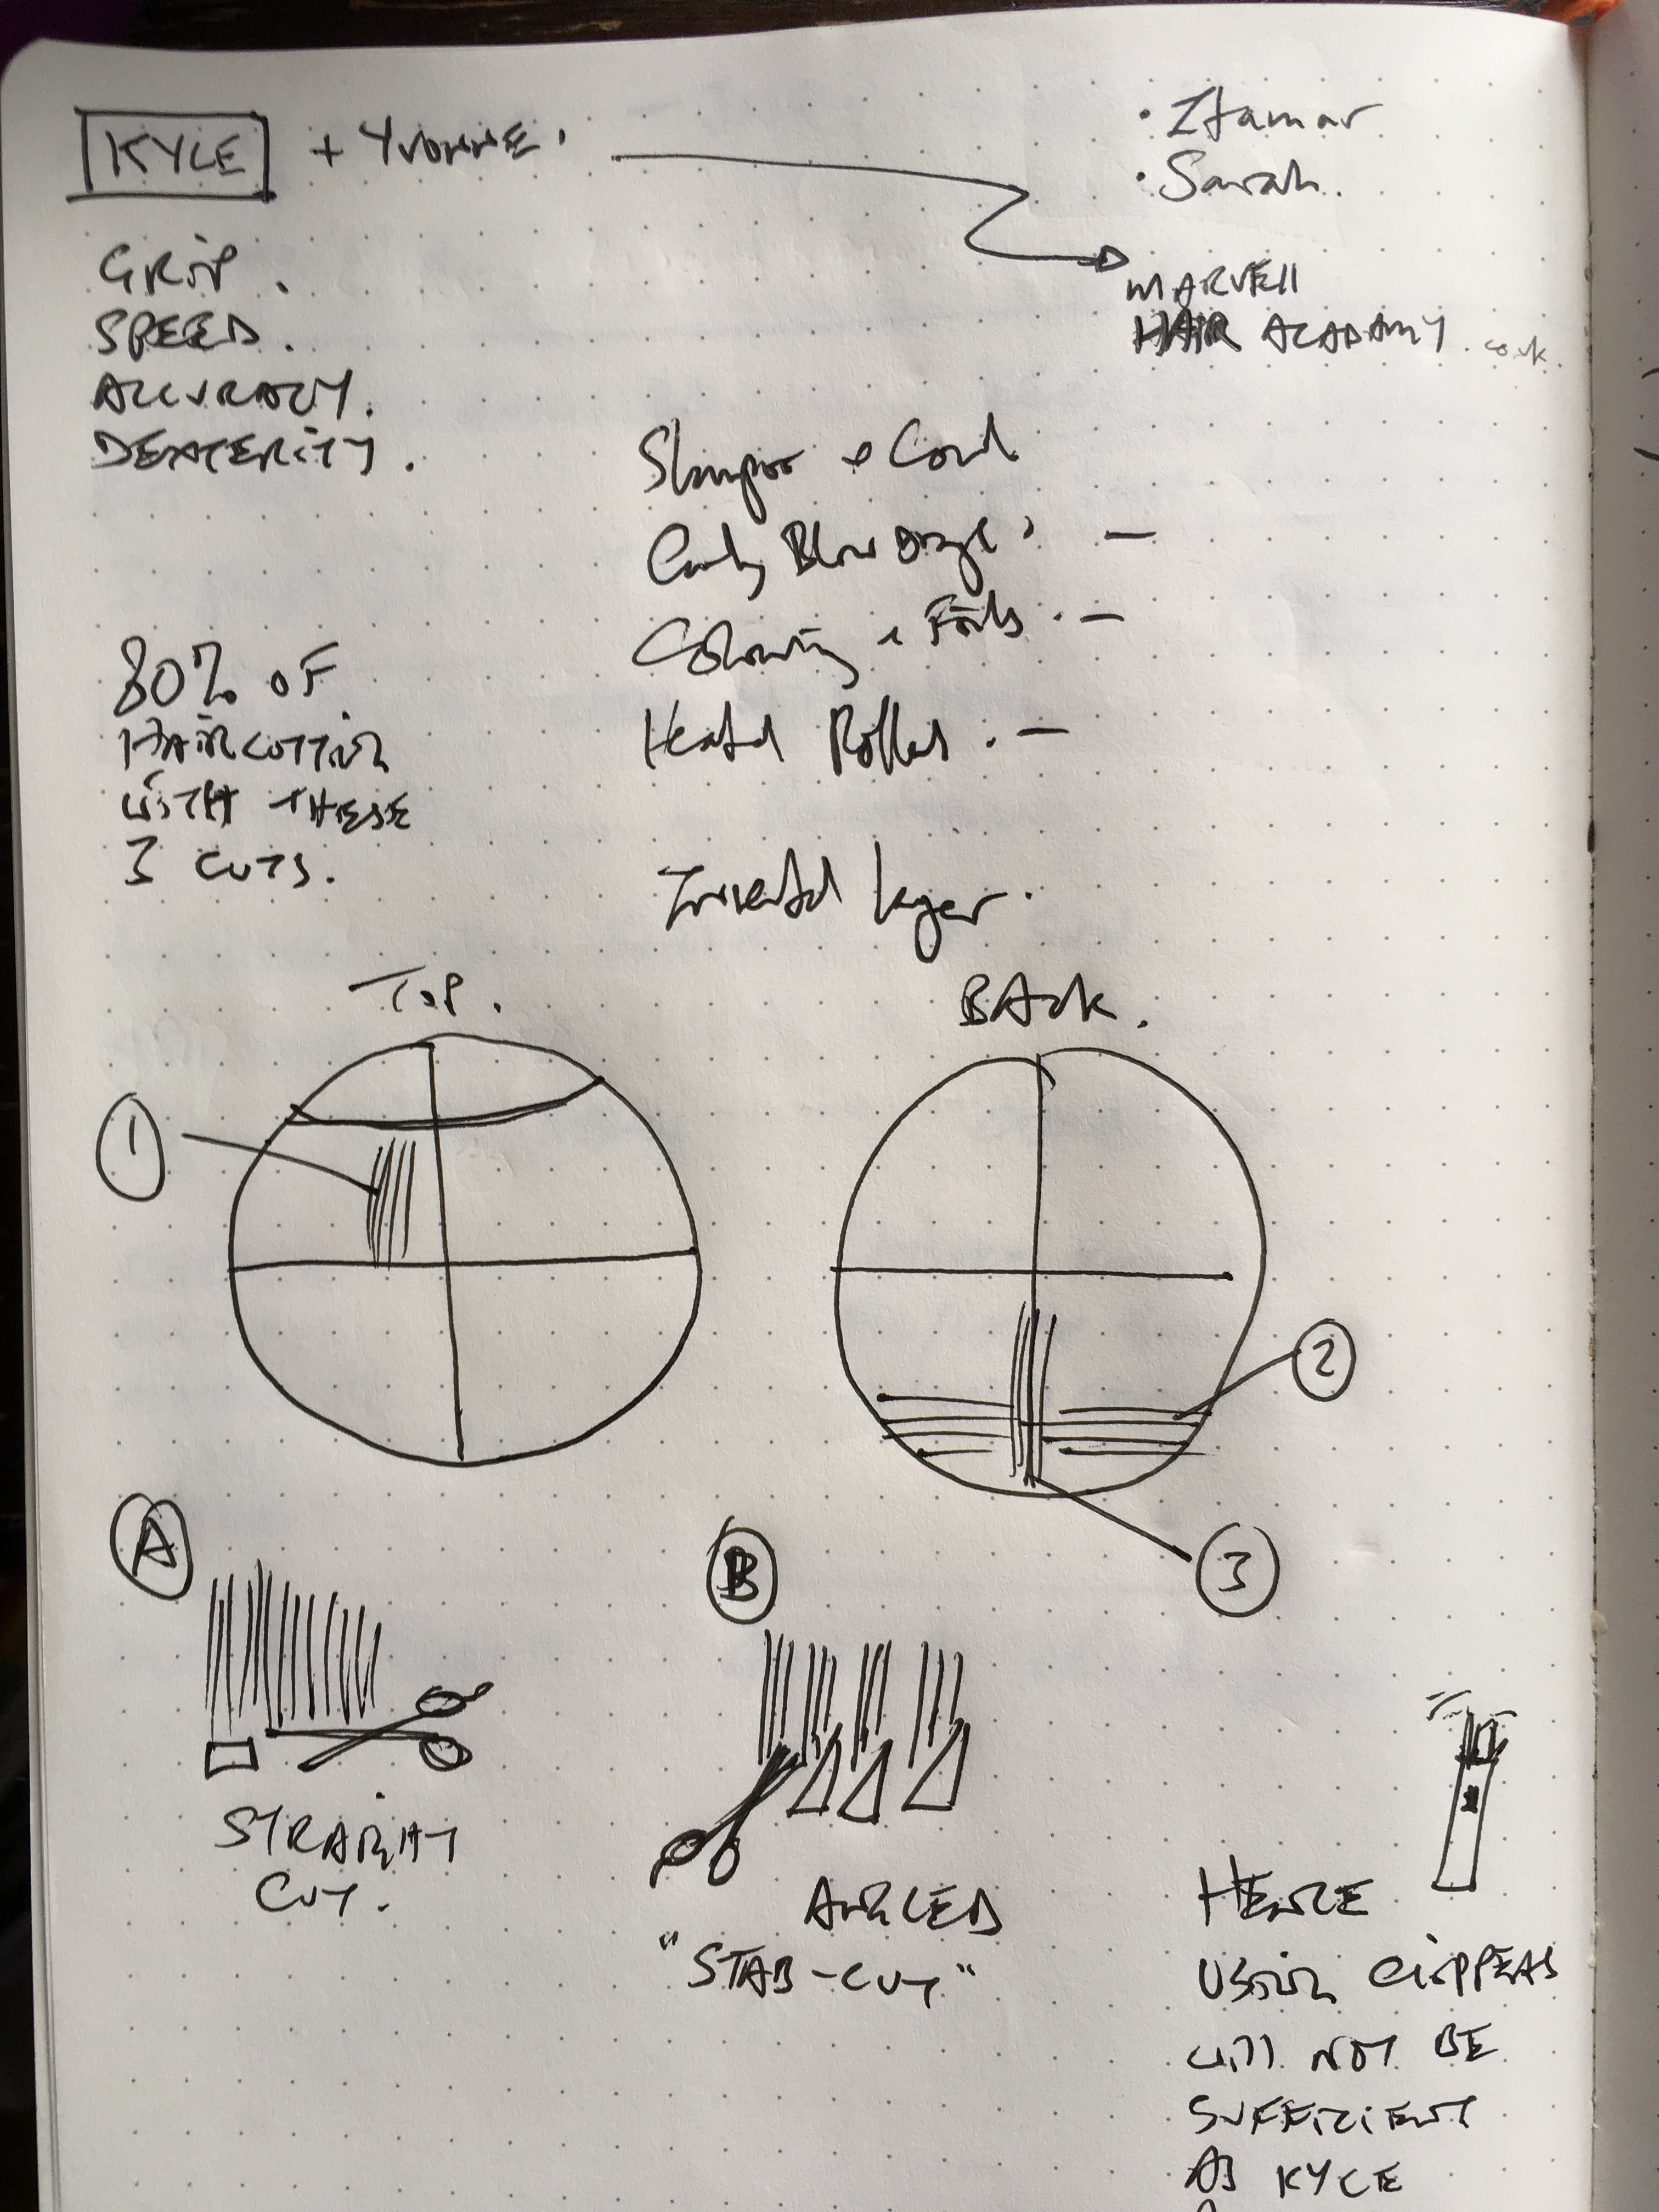 KYLE + YVONNE.
• Itamar
• Sarah.
MARVELL
HAIR ACADAMY.co.uk.
GRIP.
SPEED.
ACCURACY.
DEXTERITY.
Shampoo + Cond
Curly Blow Drye. —
Colouring + Foils. —
Heated Rollers. —
80% OF
HAIRCUTTING
WITH THESE
3 CUTS.
Inverted layer.
TOP.
BACK.
1
2
3
A
B
STRAIGHT
CUT.
ANGLED
"STAB-CUT"
HENCE
USING CLIPPERS
WILL NOT BE
SUFFICIENT
AS KYLE